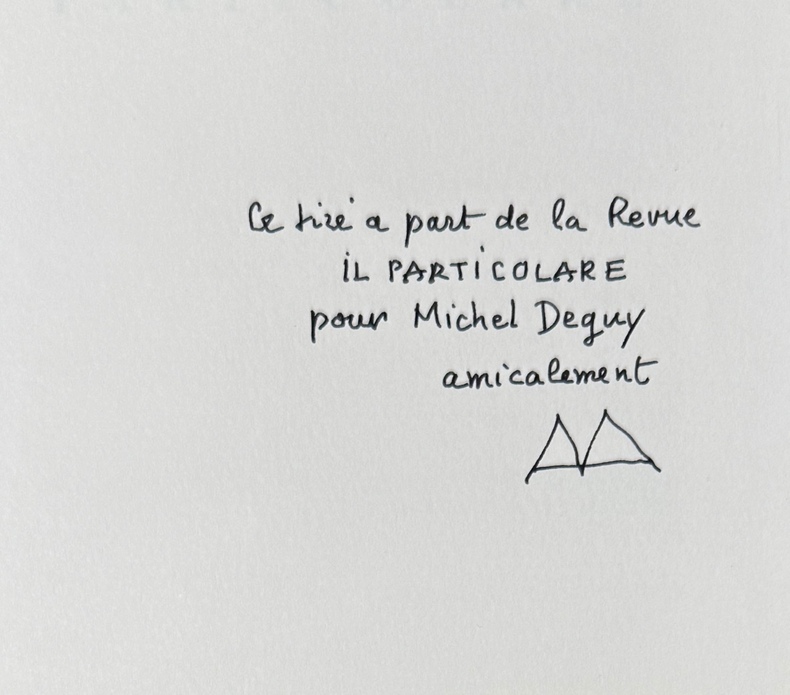 Ce tiré a part de la Revue
iL PARTiCOLARE
pour Michel Deguy
amicalement